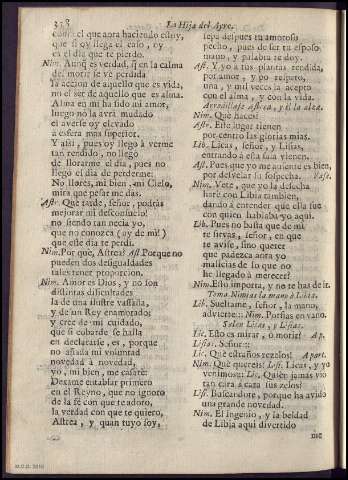 338
La Hija del Ayre.
con el que aora haciendo estoy,
que si oy llega el caso, oy
es el dia que te pierdo.
Nim. Aunq̃ es verdad, q̃ en la calma
del morir se vè perdida
la accion de aquello que es vida,
no el ser de aquello que es alma.
Alma en mi ha sido mi amor,
luego no la avrà mudado
el averse oy elevado
à esfera mas superior.
Y assi, pues oy llego à verme
tan rendido, no llegò
de llorarme el dia, pues no
llegò el dia de perderme:
No llores, mi bien, mi Cielo,
mira que pesar me das.
Astr. Què tarde, señor, podràs
mejorar mi desconsuelo!
no siendo tan necia yo,
que no conozca (ay de mi!)
que este dia te perdi.
Nim. Por què, Astrea? Ast. Porque no
pueden dos desigualdades
tales tener proporcion.
Nim. Amor es Dios, y no son
distintas dificultades
la de una ilustre vassalla,
y de un Rey enamorado;
y cree de mi cuidado,
que si cobarde se halla
en declararse, es, porque
no añada mi voluntad
novedad à novedad,
yo, mi bien, me casarè:
Dexame entablar primero
en el Reyno, que no ignoro
de la fè con que te adoro,
la verdad con que te quiero,
Astrea, y quan tuyo soy,
sepa despues tu amoroso
pecho, pues de ser tu esposo
mano, y palabra te doy.
Ast. Y yo à tus plantas rendida,
por amor, y por respeto,
una, y mil veces la acepto
con el alma, y con la vida.
Arrodillase Astrea, y èl la alza.
Nim. Què haces?
Astr. Este lugar tienen
por centro las glorias mias.
Lib. Licas, señor, y Lisias,
entrando à esta sala vienen.
Ast. Pues que yo me ausente es bien,
por desvelar su sospecha. Vase.
Nim. Vete, que yo la desecha
harè con Libia tambien,
dando à entender que ella fue
con quien hablaba yo aqui.
Lib. Pues no basta que de mi
te sirvas, señor, en que
te avise, sino querer
que padezca aora yo
malicias de lo que no
he llegado à merecer?
Nim. Esto importa, y no te has de ir.
Toma Ninias la mano à Libia.
Lib. Sueltame, señor, la mano,
advierte:: Nim. Porfias en vano.
Salen Licas, y Lisias.
Lic. Esto es mirar, ò morir? Ap.
Lisias. Señor::
Lic. Què estraños rezelos! A part.
Nim. Què quereis? Lisi. Licas, y yo
venimos:: Lic. Quien jamàs viò
tan cara à cara sus zelos!
Lisi. Buscandote, porque ha avido
una grande novedad.
Nim. El ingenio, y la beldad
de Libia aqui divertido
me